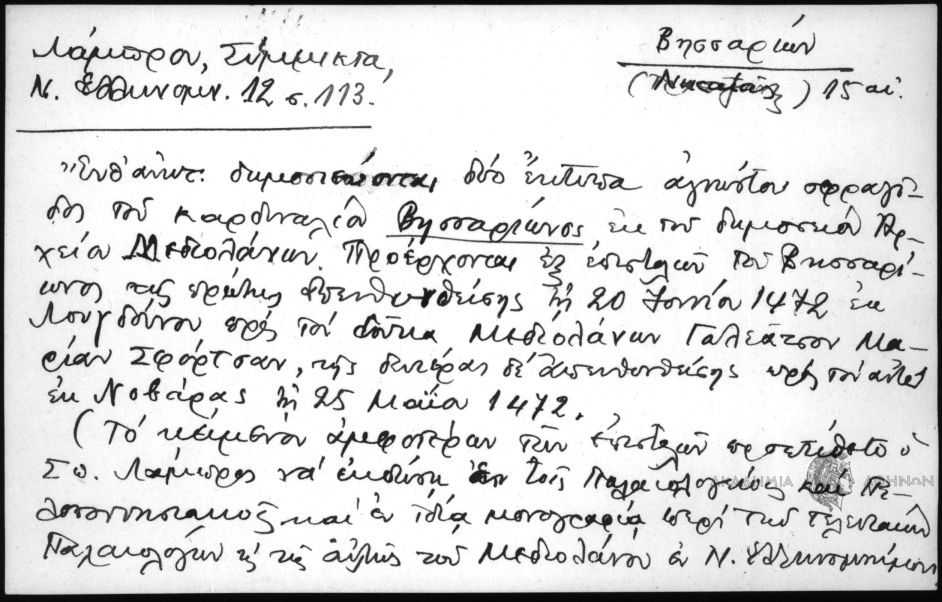 Λάμπρου, Σύμμικτα,
Ν. Ἑλληνομν. 12 σ. 113.
Βησσαρίων
( ) 15 αἰ.
"Ἐνθ' ἀνωτ. δημοσιεύονται δύο ἔκτυπα ἀγνώστου σφραγῖ-
δος τοῦ καρδιναλίου Βησσαρίωνος ἐκ τοῦ δημοσίου Ἀρ-
χείου Μεδιολάνων. Προέρχονται ἐξ ἐπιστολῶν τοῦ Βησσαρί-
ωνος τῆς πρώτης ἀπευθυνθείσης τῇ 20 Ἰουνίου 1472 ἐκ
Λουγδούνου πρὸς τὸν δοῦκα Μεδιολάνων Γαλεάτσον Μα-
ρίαν Σφόρτσαν, τῆς δευτέρας δὲ ἀπευθυνθείσης πρὸς τὸν αὐτὸν
ἐκ Νοβάρας τῇ 25 Μαΐου 1472.
(Τὸ κείμενον ἀμφοτέρων τῶν ἐπιστολῶν προετίθετο ὁ
Σπ. Λάμπρος νὰ ἐκδώσῃ ἐν τοῖς Παλαιολογείοις καὶ Πε-
λοποννησιακοῖς καὶ ἐν ἰδίᾳ μονογραφίᾳ περὶ τῶν τελευταίων
Παλαιολόγων ἐν τῇ αὐλῇ τοῦ Μεδιολάνου ἐν Ν. Ἑλληνομνήμονι
ΑΚΑΔΗΜΙΑ ΑΘΗΝΩΝ